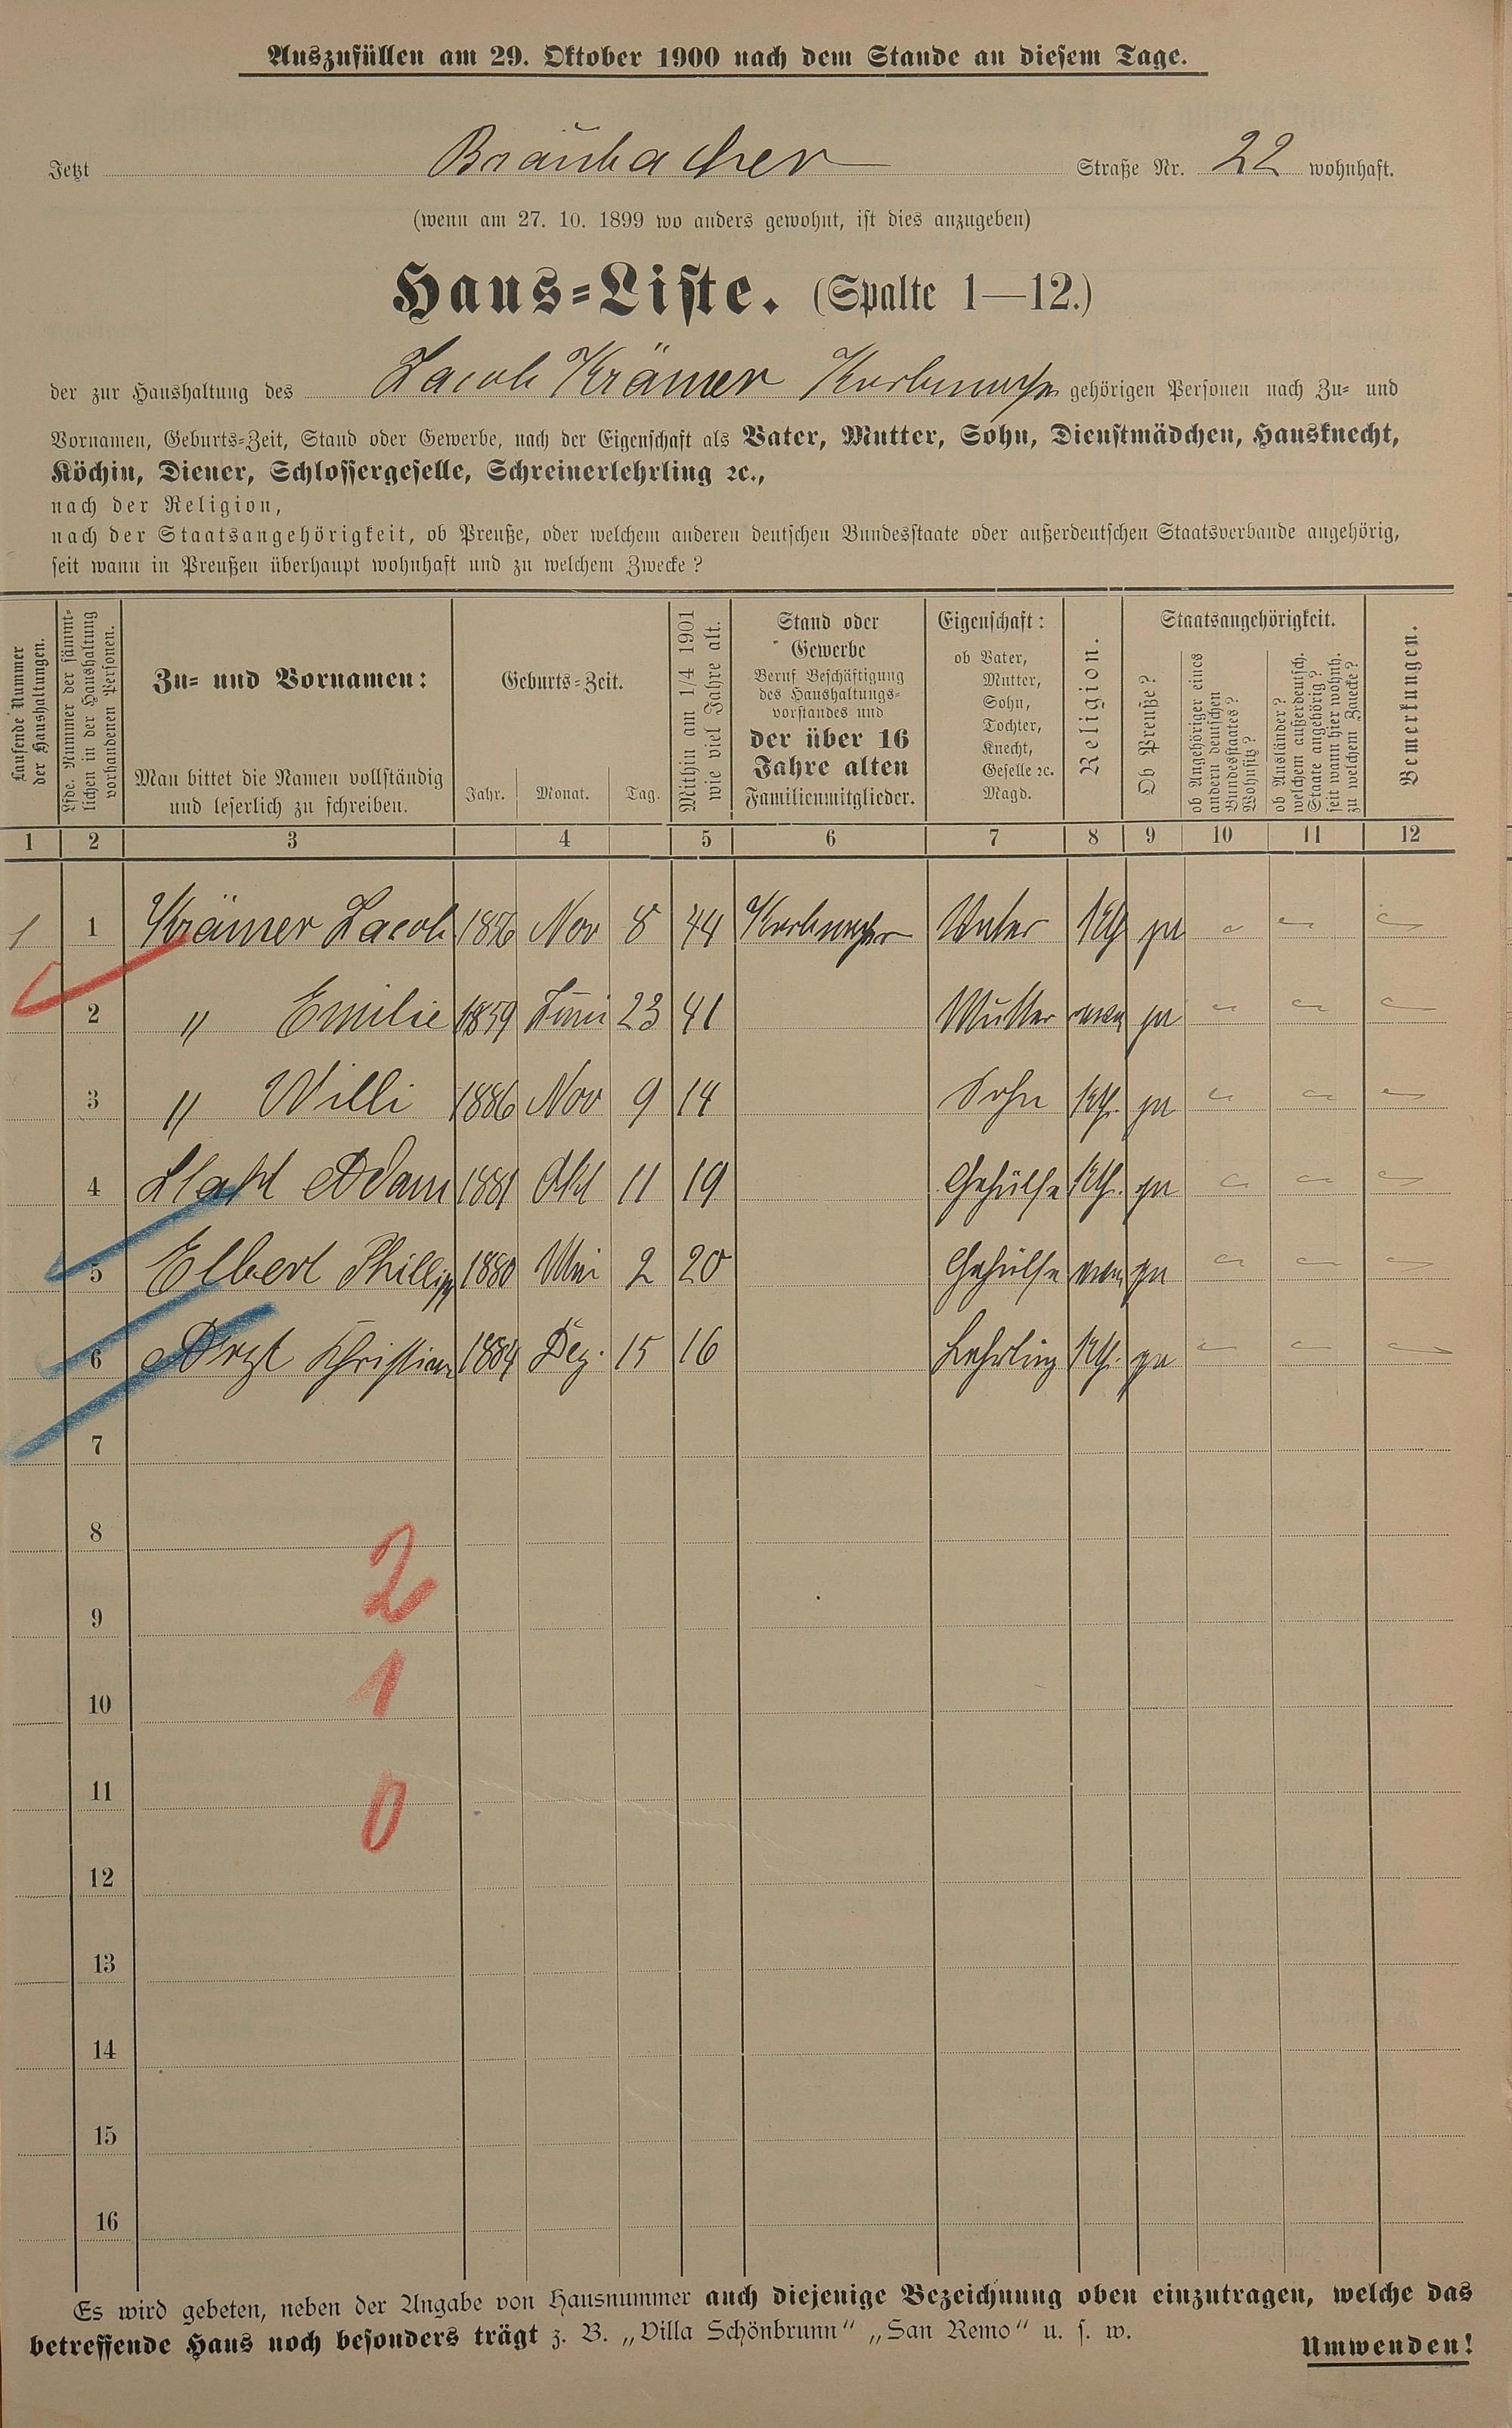 Auszufüllen am 29. Oktober 1900 nach dem Stande an diesem Tage.
Jetzt Braubacher Straße Nr. 22 wohnhaft.
(wenn am 27. 10. 1899 wo anders gewohnt, ist dies anzugeben)
Haus-Liste. (Spalte 1—12.)
der zur Haushaltung des Jacob Krämer Korbmacher gehörigen Personen nach Zu- und
Vornamen, Geburts-Zeit, Stand oder Gewerbe, nach der Eigenschaft als Vater, Mutter, Sohn, Dienstmädchen, Hausknecht,
Köchin, Diener, Schlossergeselle, Schreinerlehrling ꝛc.,
nach der Religion,
nach der Staatsangehörigkeit, ob Preuße, oder welchem anderen deutschen Bundesstaate oder außerdeutschen Staatsverbande angehörig,
seit wann in Preußen überhaupt wohnhaft und zu welchem Zwecke?
Laufende Nummer
der Haushaltungen.
Lfde. Nummer der sämmt-
lichen in der Haushaltung
vorhandenen Personen.
Zu- und Vornamen:
Man bittet die Namen vollständig
und leserlich zu schreiben.
Geburts-Zeit.
Jahr. Monat. Tag.
Mithin am 1/4 1901
wie viel Jahre alt.
Stand oder
Gewerbe
Beruf Beschäftigung
des Haushaltungs-
vorstandes und
der über 16
Jahre alten
Familienmitglieder.
Eigenschaft:
ob Vater,
Mutter,
Sohn,
Tochter,
Knecht,
Geselle ꝛc.
Magd.
Religion.
Staatsangehörigkeit.
Ob Preuße?
ob Angehöriger eines
andern deutschen
Bundesstaates?
Wohnsitz?
ob Ausländer?
welchem außerdeutsch.
Staate angehörig?
seit wann hier wohnh.
zu welchem Zwecke?
Bemerkungen.
1 2 3 4 5 6 7 8 9 10 11 12
1 1 Krämer Jacob 1856 Nov 8 44 Korbmacher Vater Kth ja
2 " Emilie 1859 Juni 23 41 Mutter evan ja
3 " Willi 1886 Nov 9 14 Sohn Kth. ja
4 Adam 1881 Okt 11 19 Gehülfe Kth. ja
5 Elbert Phillipp 1880 Mai 2 20 Gehülfe evan ja
6 Arzt Christian 1884 Dez. 15 16 Lehrling Kth. ja
7
8
2
9
10
1
11
0
12
13
14
15
16
Es wird gebeten, neben der Angabe von Hausnummer auch diejenige Bezeichnung oben einzutragen, welche das
betreffende Haus noch besonders trägt z. B. „Villa Schönbrunn“ „San Remo“ u. s. w.
Umwenden!